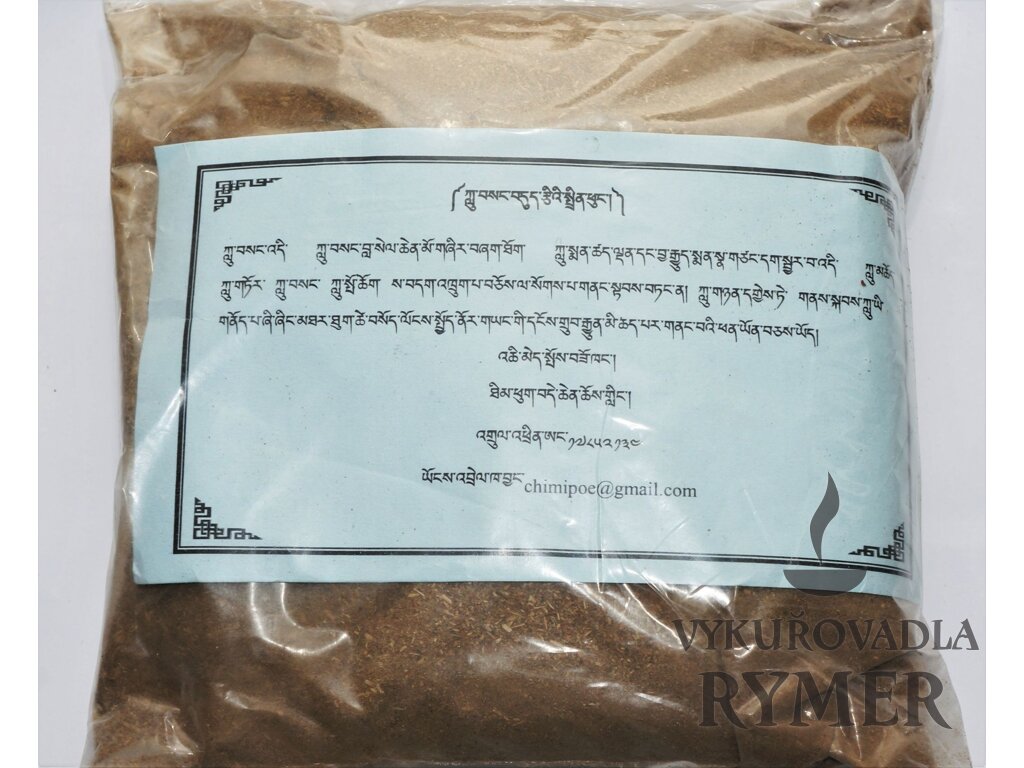 ༼ ཀླུ་བསང་བདུད་རྩིའི་སྤྲིན་ཕུང་། ༽
ཀླུ་བསང་འདི་ ཀླུ་བསང་བླ་སེལ་ཆེན་མོ་གཞིར་བཞག་ཐོག ཀླུ་སྨན་ཚད་ལྡན་དང་བྱ་རྒྱུད་སྨན་སྣ་གཙང་དག་སྦྱར་བ་འདི་ ཀླུ་མཆོ
ཀླུ་གཏོར་ ཀླུ་བསང་ ཀླུ་སྤོ་ཆོག ས་བདག་འཁྲུག་པ་བཅོས་ལ་སོགས་པ་གནང་སྟབས་བཏང་ན། ཀླུ་གཉན་དགྱེས་ཏེ་ གནས་སྐབས་ཀླུ་ཡི་
གནོད་པ་ཞི་ཞིང་མཐར་ཐུག་ཚེ་བསོད་ལོངས་སྤྱོད་ནོར་གཡང་གི་དངོས་གྲུབ་རྒྱུན་མི་ཆད་པར་གནང་བའི་ཕན་ཡོན་བཅས་ཡོད།
འཆི་མེད་སྤོས་བཟོ་ཁང་།
ཐིམ་ཕུག་བདེ་ཆེན་ཆོས་གླིང་།
འགྲུལ་འཕྲིན་ཨང་༡༧༨༥༢༡༣༠
ཡོངས་འབྲེལ་ཁ་བྱང་ chimipoe@gmail.com
VYKUŘOVADLA
RYMER